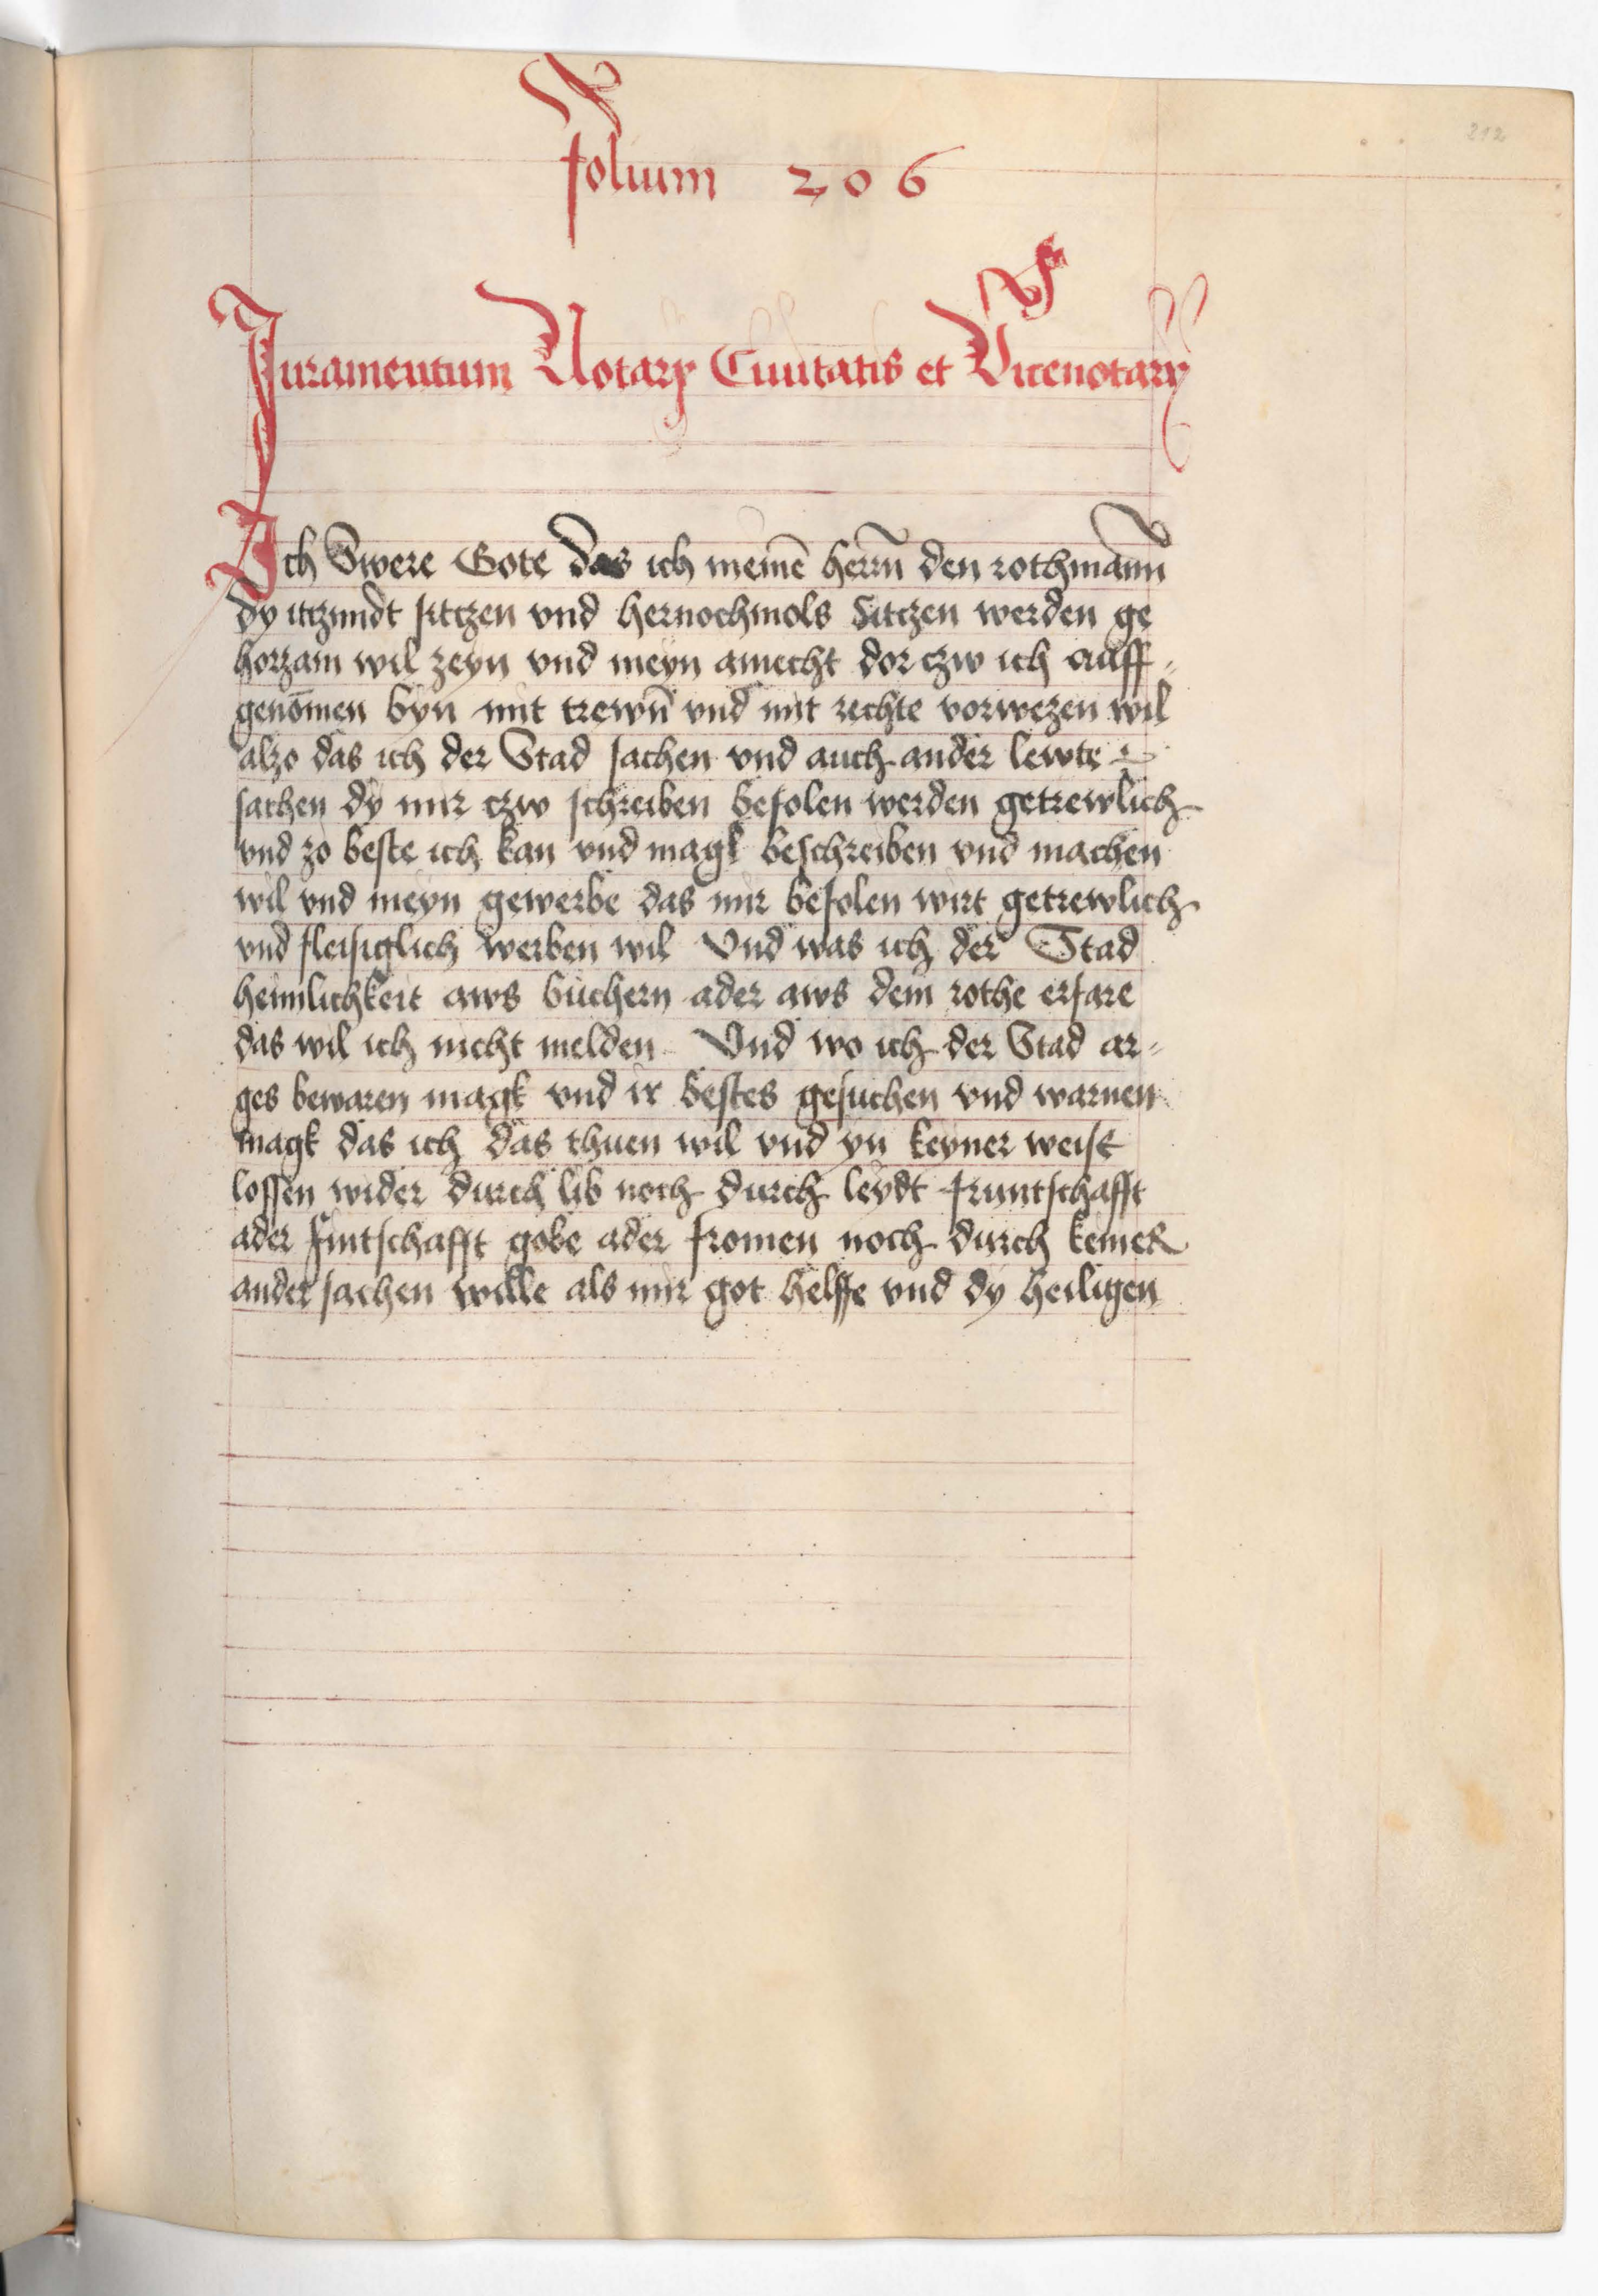 212
folium 206
Juramentum Notarÿ Ciuitatis et Vicenotarÿ
Ich Swere Gote das ich meinē herrn̄ den rothmann
dy itczundt sitczen vnd hernochmols Sitczen werden ge
horzam wil zeyn vnd meyn amecht dor czw ich auff-
genōmen byn mit trewn̄ vnd mit rechte vorwezen wil
alzo das ich der Stad sachen vnd auch ander lewte
sachen dy mir czw schreiben befolen werden getrewlich
vnd zo beste ich kan vnd magk beschreiben vnd machen
wil vnd meyn gewerbe das mir befolen wirt getrewlich
vnd fleisiglich werben wil Vnd was ich der Stad
heimlichkeit aws büchern ader aws dem rothe erfare
das wil ich nicht melden Vnd wo ich der Stad ar-
ges bewaren magk vnd ir bestes gesuchen vnd warnen
magk das ich das thuen wil vnd yn keyner weise
lossen wider durch lib noch durch leydt fruntschafft
ader fintschafft gobe ader fromen noch durch keiner
ander sachen wille als mir got helffe vnd dy heiligen